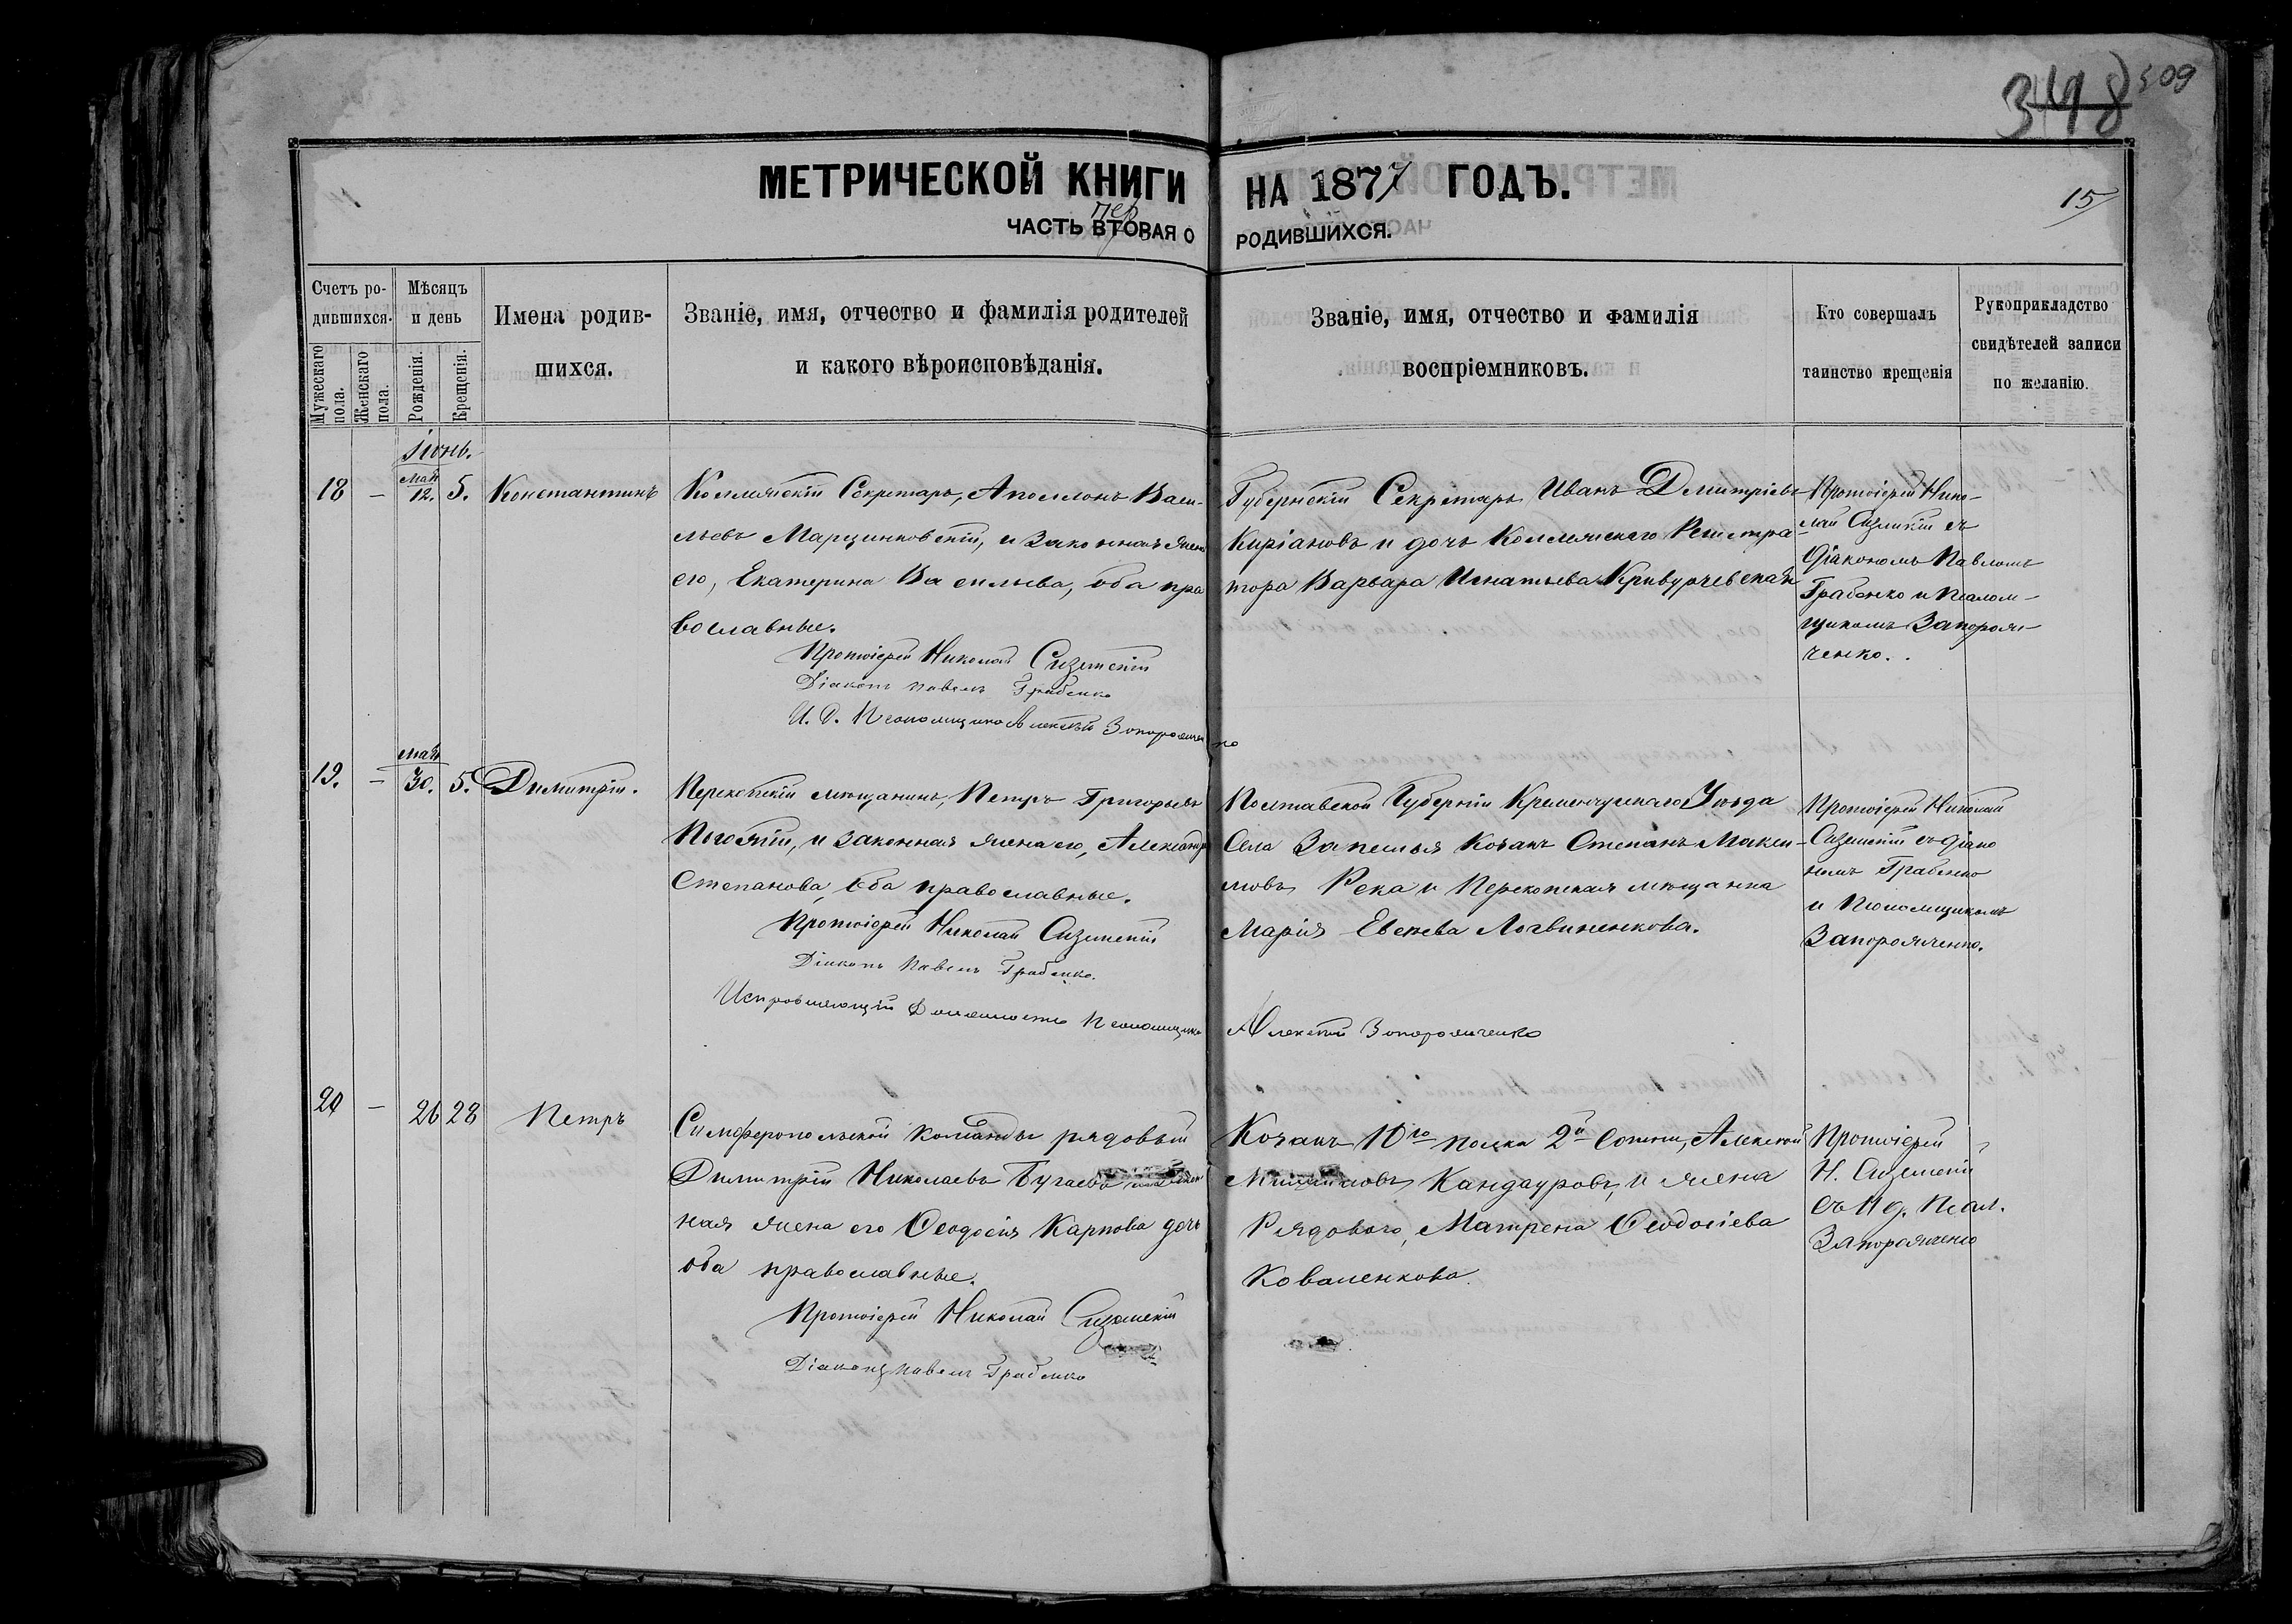 348 509
МЕТРИЧЕСКОЙ КНИГИ НА 1877 ГОДЪ.
15
пер
ЧАСТЬ ВТОРАЯ О РОДИВШИХСЯ.
Счетъ ро-
дившихся.
Мужескаго
пола.
Женскаго
пола.
Мѣсяцъ
и день
Рожденія.
Крещенія.
Имена родив-
шихся.
Званіе, имя, отчество и фамилія родителей
и какого вѣроисповѣданія.
Званіе, имя, отчество и фамилія
воспріемниковъ.
Кто совершалъ
таинство крещенія
Рукоприкладство
свидѣтелей записи
по желанію.
Іюнь.
18 – Мая 12. 5. Константинъ
Коллежскій Секретарь, Аполлонъ Васи-
льевъ Марцинковскій, и законная жена
его, Екатерина Васильева, оба пра
вославные.
Протоіерей Николай Сизинскій
Діаконъ Павелъ Грабенко
И. Д. Псаломщика Алексѣй Запорожченко
Губернскій Секретарь Иванъ Димитріевъ
Киріановъ и дочь Коллежскаго Регистра-
тора Варвара Игнатьева
Протоіерей Нико-
лай Сизинскій съ
Діакономъ Павломъ
Грабенко и Псалом-
щикомъ Запорож-
ченко.
19. – Мая 30. 5. Димитрій.
Перекопскій мѣщанинъ, Петръ Григорьевъ
и законная жена его, Александра
Степанова, оба православные.
Протоіерей Николай Сизинскій
Діаконъ Павелъ Грабенко.
Исправляющій Должность Псаломщика Алексѣй Запорожченко
Полтавской Губерніи Кременчугскаго Уѣзда
Села Запселья Козакъ Степанъ Макси-
мовъ Река и Перекопская мѣщанка
Марія Логвиненкова.
Протоіерей Николай
Сизинскій съ діако
номъ Грабенко
и Псаломщикомъ
Запорожченко.
20 – 26 28 Петръ
Симферопольской команды рядовый
Димитрій Николаевъ Бугаевъ и закон
ная жена его Ѳеодосія Карпова дочь
оба православные.
Протоіерей Николай Сизинскій
Діаконъ Павелъ Грабенко
Козакъ 10го полка 2й Сотни, Алексѣй
Кандауровъ, и жена
Рядового, Матрена Ѳеодосіева
Коваленкова.
Протоіерей
Н. Сизинскій
съ И д. Псал.
Запорожченко